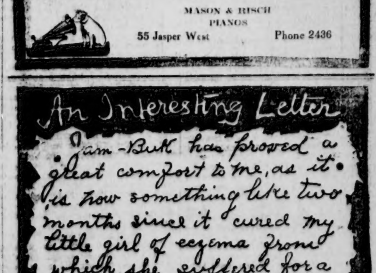 MASON & RISCH
PIANOS
55 Jasper West Phone 2436
An Interesting Letter
Zam-Buk has proved a
great comfort to me, as it
is now something like two
months since it cured my
little girl of eczema from
which she suffered for a